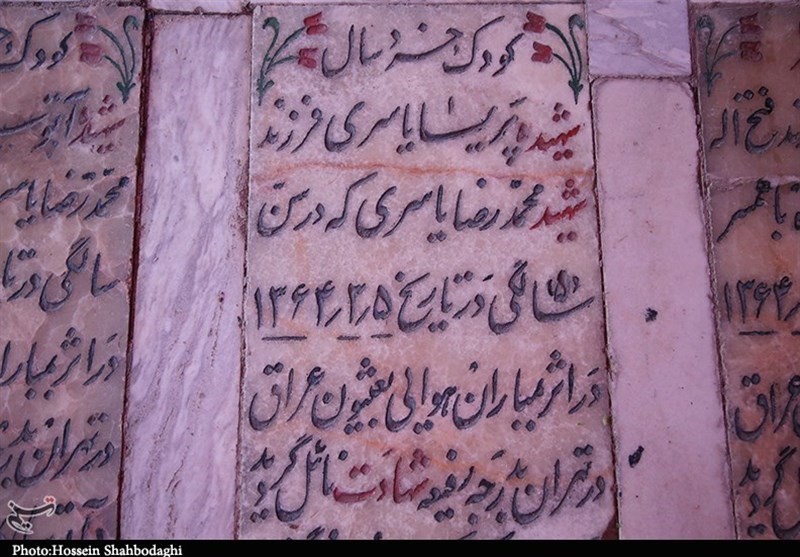 کودک خردسال
شهیده پریسا یاسری فرزند
شهید محمدرضا یاسری که درسن
سالگی در تاریخ ۱۳۶۴٫۳٫۵
در اثر بمباران هوایی بعثیون عراق
در تهران بدرجه رفیعه شهادت نائل گردید
کودک
شهید
محمدرضا یاسر
سالگی در تا
در اثر بمبارا
در تهران بد
فتح اله
۱۳۶۴
عراق
تسنیم
Photo:Hossein Shahbodaghi